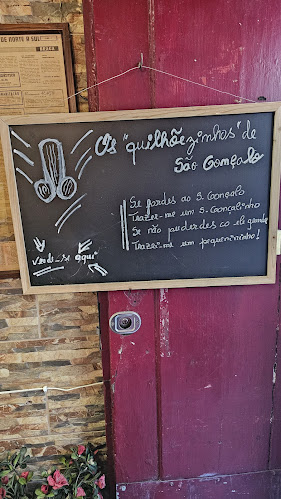 DE NORTE A SUL!
BRAGA
Os "quilhõezinhos" de
São Gonçalo
Se fordes ao S. Gonçalo
Trazer-me um S. Gonçalinho
Se não puderdes co ele grande
Trazei-me um pequenininho!
Vende-se aqui